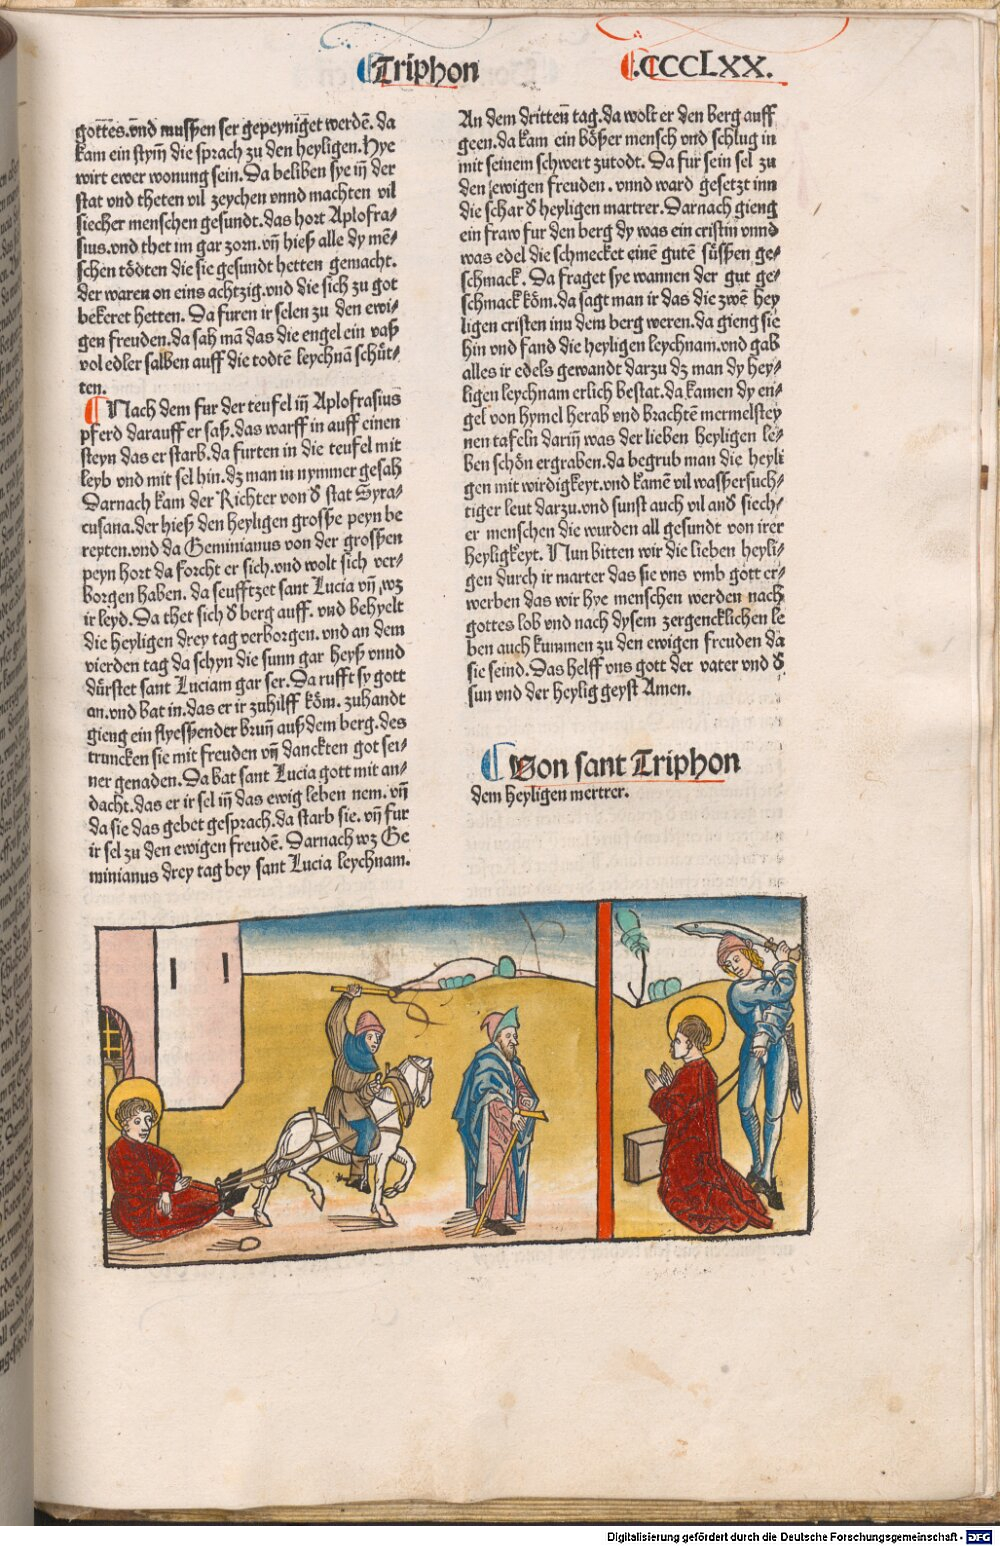 Triphon
.CCCCLXX.
gottes.vnd musssen ser gepeyniget werdē. da
kam ein stym̄ die sprach zu den heyligen. Hye
wirt ewer wonung sein. Da beliben sye in̄ der
stat vnd theten vil zeychen vnnd machten vil
siecher menschen gesundt. das hort Aplofra⸗
sius. vnd thet im gar zorn. vn̄ hieß alle dy mē⸗
schen tödten die sie gesundt hetten gemacht.
der waren on eins achtzig. vnd die sich zu got
bekeret hetten. Da furen ir selen zu den ewi⸗
gen freuden. da sah mā das die engel ein vaß
vol edler salben auff die todtē leychnā schüt⸗
ten.
Nach dem fur der teufel in̄ Aplofrasius
pferd darauff er saß. das warff in auff einen
steyn das er starb. da furten in die teufel mit
leyb vnd mit sel hin. dz man in nymmer gesah
Darnach kam der Richter von d̕ stat Syra⸗
cusana. der hieß den heyligen grosse peyn be
reyten. vnd da Geminianus von der grossen
peyn hort da forcht er sich. vnd wolt sich ver⸗
borgen haben. da seufftzet sant Lucia vn̄ wz
ir leyd. Da thet sich d̕ berg auff. vnd behyelt
die heyligen drey tag verborgen. vnd an dem
vierden tag da schyn die sunn gar heyß vnnd
dürstet sant Luciam gar ser. Da rufft sy gott
an. vnd bat in. das er ir zuhilff köm. zuhandt
gieng ein flyessender brun̄ auß dem berg. des
truncken sie mit freuden vn̄ danckten got sei⸗
ner genaden. Da bat sant Lucia gott mit an⸗
dacht. das er ir sel in̄ das ewig leben nem. vn̄
da sie das gebet gesprach. da starb sie. vn̄ fur
ir sel zu den ewigen freudē. Darnach wz Ge
minianus drey tag bey sant Lucia leychnam.
An dem dritten̄ tag. da wolt er den berg auff
geen. da kam ein bößer mensch vnd schlug in
mit seinem schwert zutodt. Da fur sein sel zu
den ewigen freuden. vnnd ward gesetzt inn
die schar d̕ heyligen martrer. Darnach gieng
ein fraw fur den berg dy was ein cristin̄ vnnd
was edel die schmecket einē gutē süssen ge⸗
schmack. Da fraget sye wannen der gut ge⸗
schmack köm. da sagt man ir das die zwē hey
ligen cristen inn dem berg weren. da gieng sie
hin vnd fand die heyligen leychnam. vnd gab
alles ir edels gewandt darzu dz man dy hey⸗
ligen leychnam erlich bestat. da kamen dy en⸗
gel von hymel herab vnd brachtē mermelstey
nen tafeln darin̄ was der lieben heyligen le⸗
ben schön ergraben. da begrub man die heyli
gen mit wirdigkeyt. vnd kamē vil wassersuch⸗
tiger leut darzu. vnd sunst auch vil and̕ siech⸗
er menschen die wurden all gesundt von irer
heyligkeyt. Nun bitten wir die lieben heyli⸗
gen durch ir marter das sie vns vmb gott er⸗
werben das wir hye menschen werden nach
gottes lob vnd nach dysem zergencklichen le
ben auch kummen zu den ewigen freuden da
sie seind. Das helff vns gott der vater vnd d̕
sun vnd der heylig geyst Amen.
Von sant Triphon
dem heyligen mertrer.
Digitalisierung gefördert durch die Deutsche Forschungsgemeinschaft - DFG